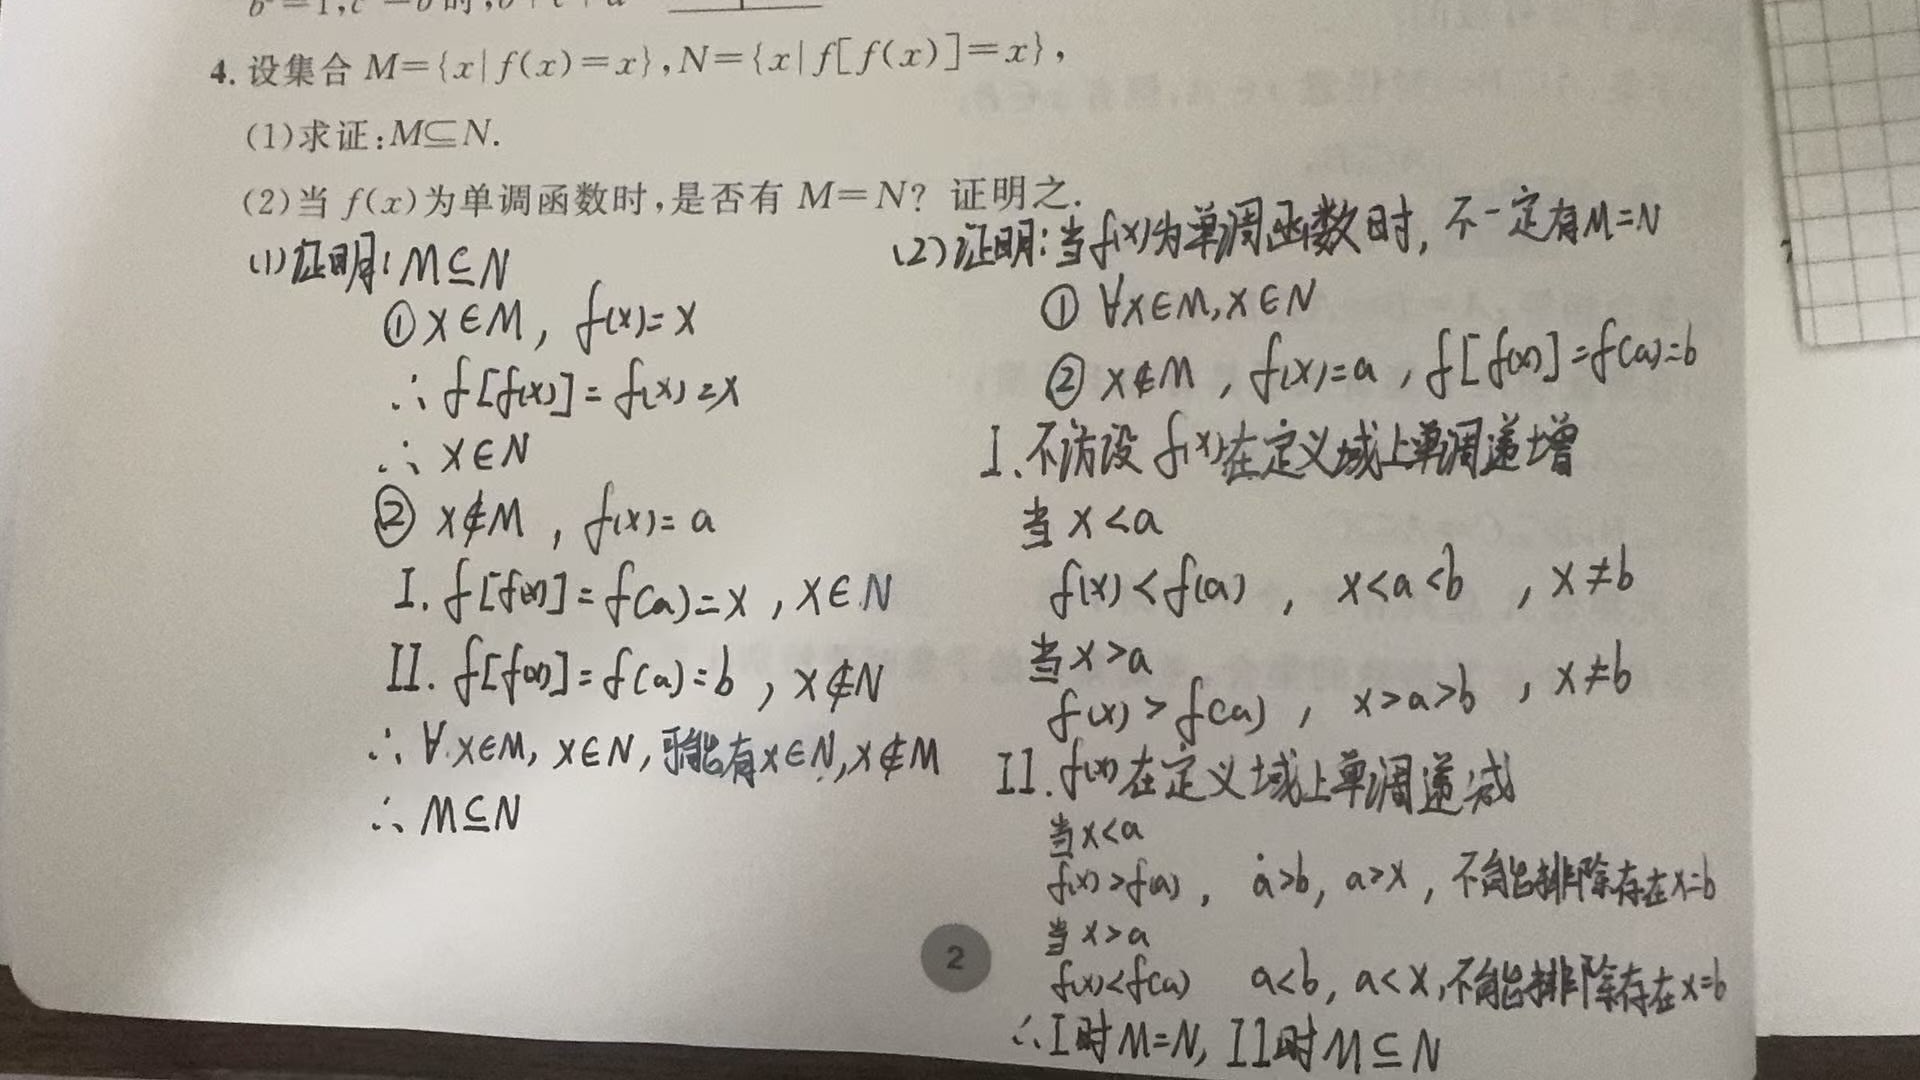 4. 设集合 M={x|f(x)=x},N={x|f[f(x)]=x},
(1)求证:M⊆N.
(2)当 f(x)为单调函数时,是否有 M=N? 证明之.
(1)证明: M⊆N
① x∈M, f(x)=x
∴ f[f(x)]=f(x)=x
∴ x∈N
② x∉M , f(x)=a
I. f[f(x)]=f(a)=x , x∈N
II. f[f(x)]=f(a)=b , x∉N
∴ ∀x∈M, x∈N, 可能有x∈N, x∉M
∴ M⊆N
(2)证明:当f(x)为单调函数时, 不一定有M=N
① ∀x∈M, x∈N
② x∉M , f(x)=a , f[f(x)]=f(a)=b
I. 不访设 f(x)在定义域上单调递增
当 x<a
f(x)<f(a) , x<a<b , x≠b
当x>a
f(x)>f(a) , x>a>b , x≠b
II. f(x)在定义域上单调递减
当x<a
f(x)>f(a) , a>b, a>x , 不能排除存在x=b
当x>a
f(x)<f(a) a<b, a<x, 不能排除存在x=b
∴ I时M=N, II时M⊆N
2